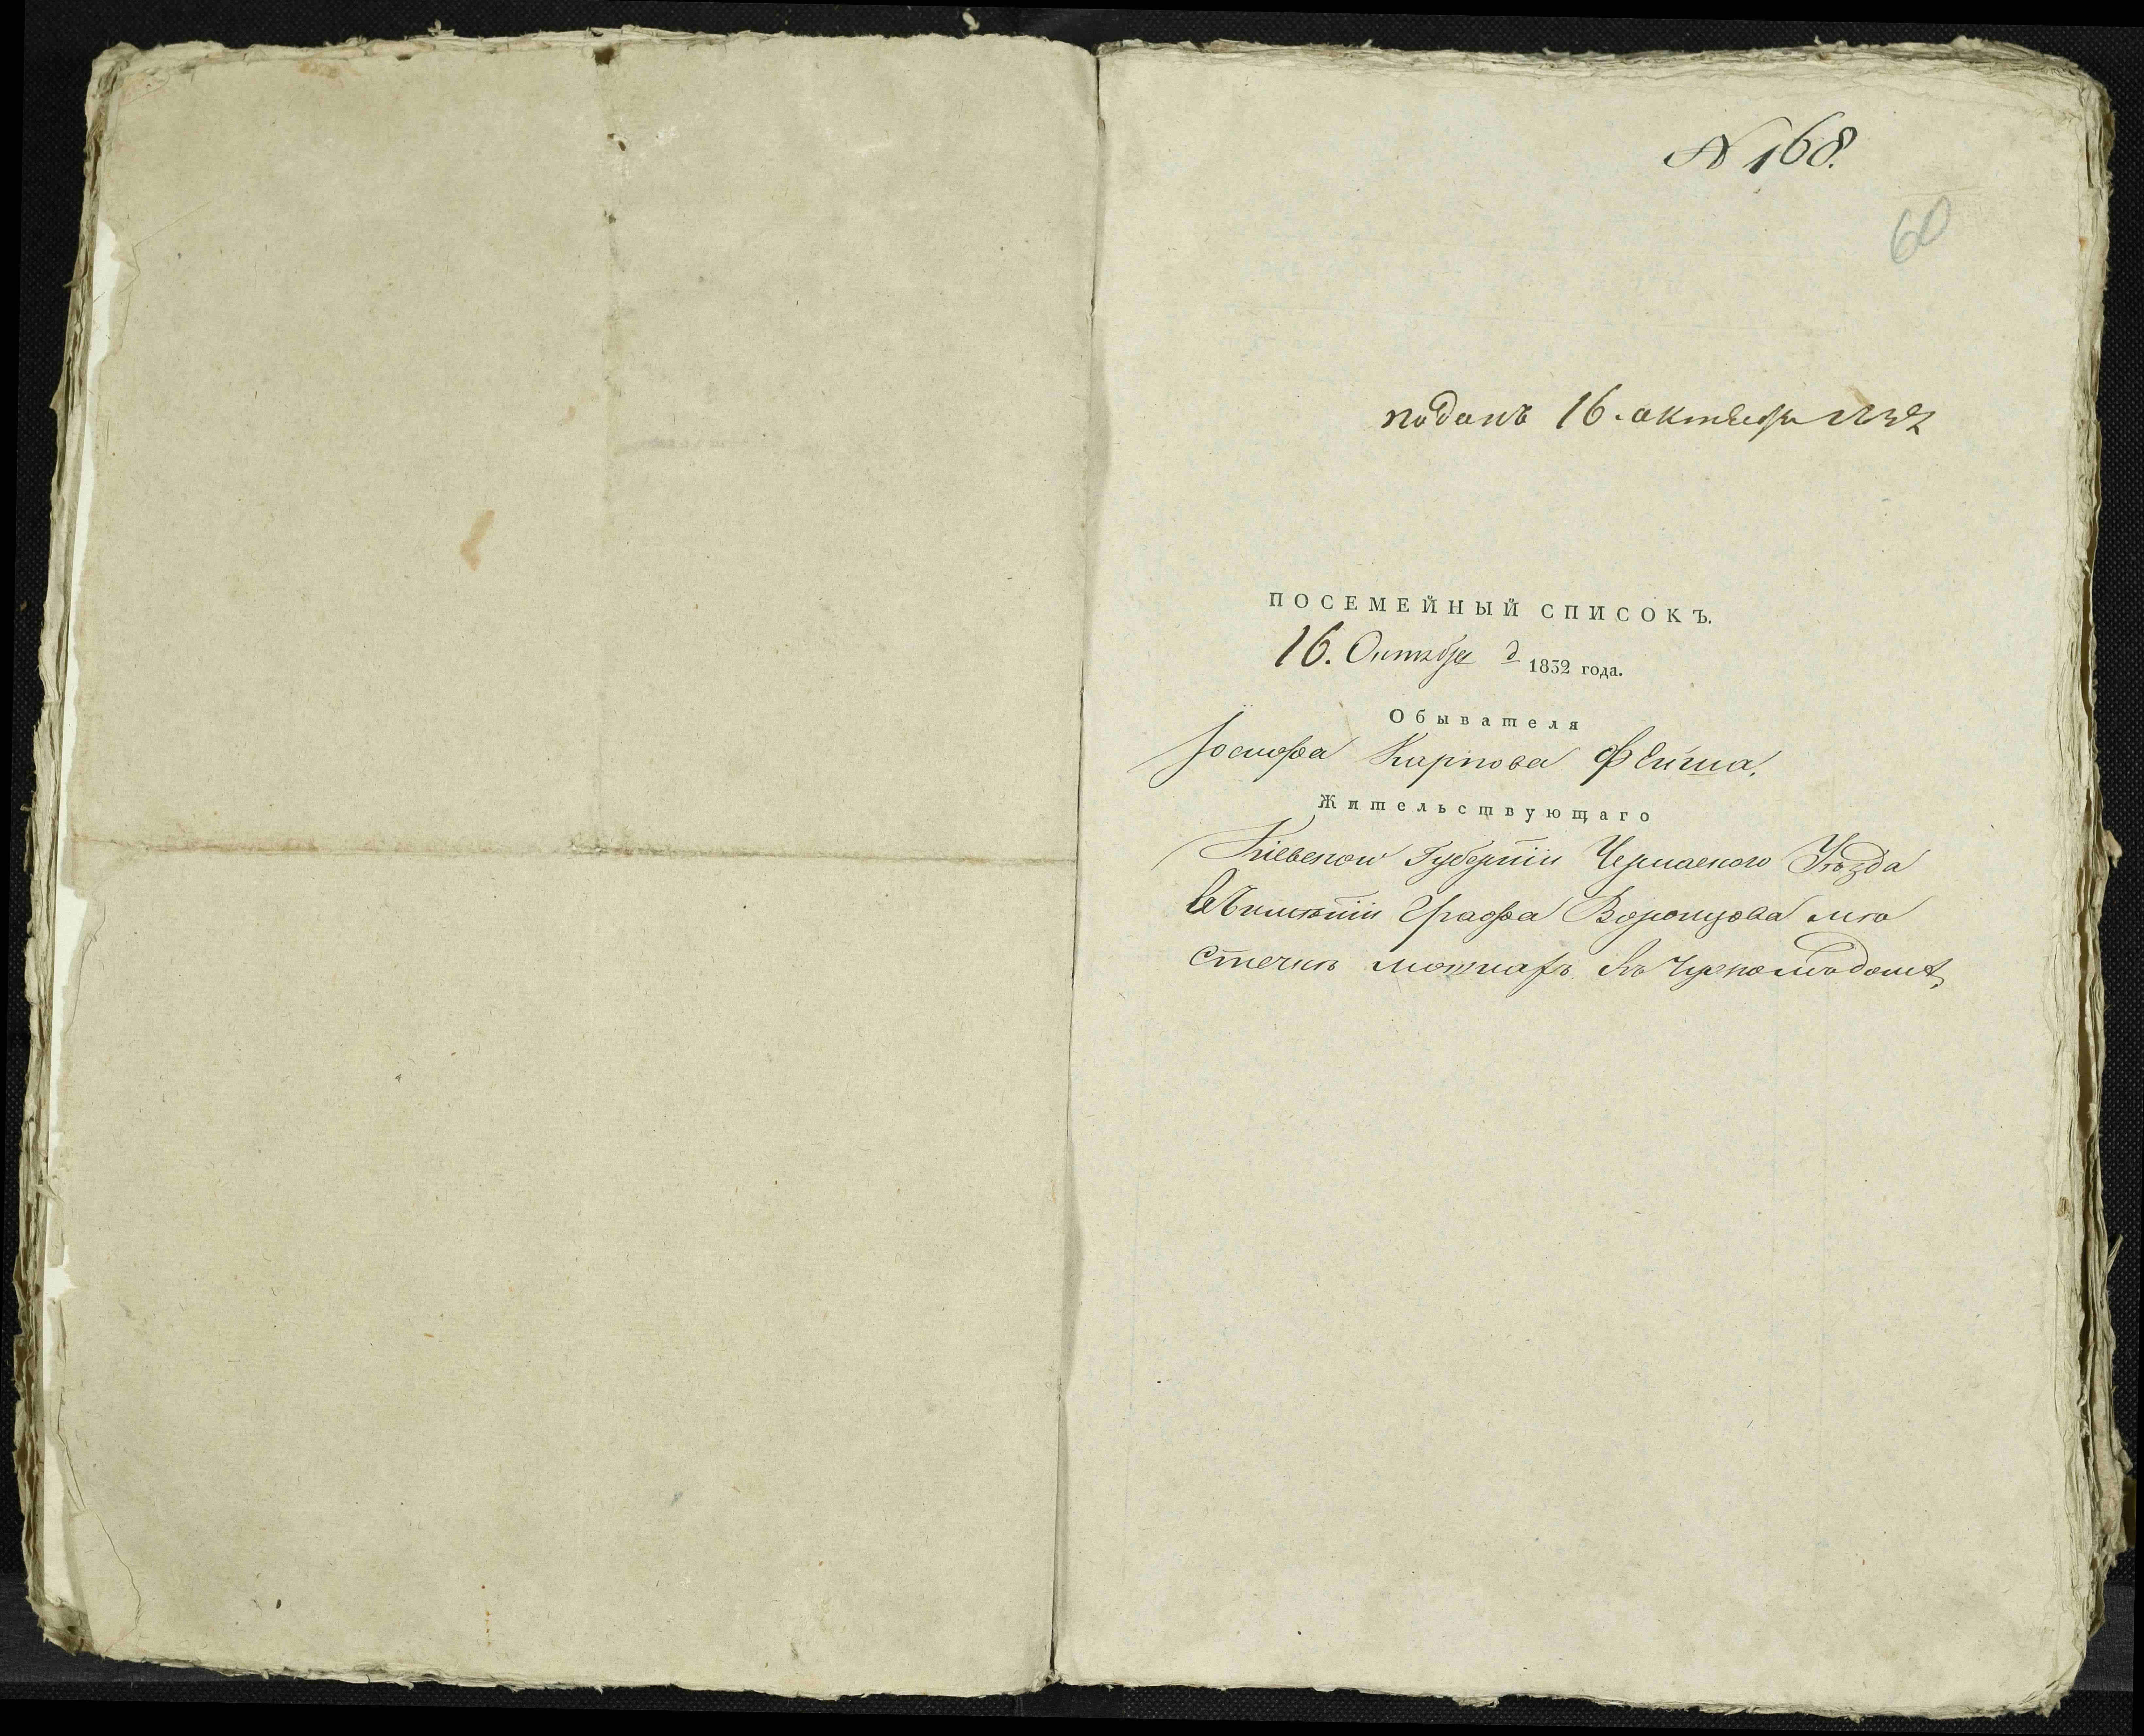 N 168.
60
поданъ 16. октября 1832
ПОСЕМЕЙНЫЙ СПИСОКЪ.
16. Октября д 1832 года.
Обывателя
Іосифа Карпова Фейгиа.
Жительствующаго
Кіевской Губерніи Черкаского Уѣзда
въ имѣніи Графа Воронцова мѣ
стечкѣ Мошнахъ въ